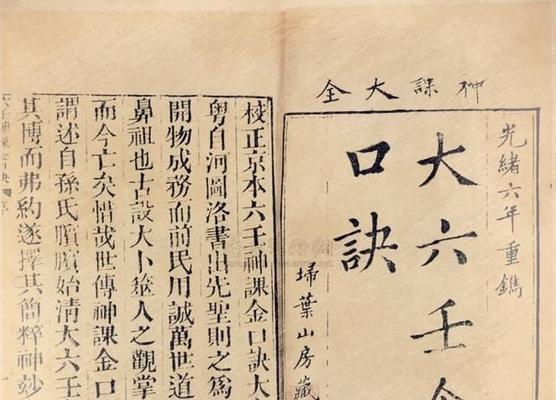 神課大全
光緒六年重鐫
大六壬
口訣
埽葉山房藏
校正京本六壬神課金口訣大
粵自河圖洛書出先聖則之爲
開物成務而前民用誠萬世道
鼻祖也古設大卜筮人之觀掌
而今亡矣惜哉世傳神課金口
謂述自孫氏臏臏始清大六壬
其博而弗約遂擇其簡粹神妙